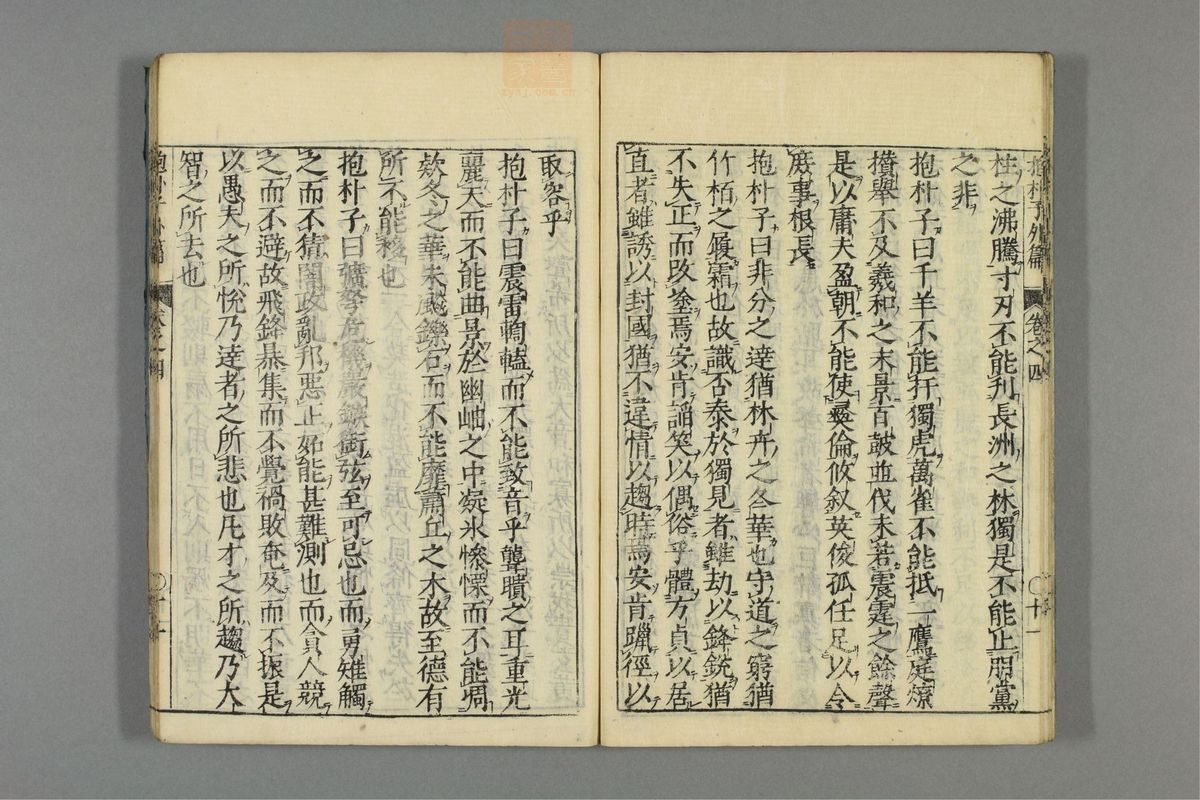 抱朴子外篇 卷之四 ○十一
柱之沸騰寸刃不能刋長洲之林獨是不能止朋黨
之非
抱朴子曰千羊不能扞獨虎萬雀不能抵一鷹庭燎
攢舉不及羲和之末景百鼓並伐未若震霆之餘聲
是以庸夫盈朝不能使彞倫攸叙英俊孤任足以令
庶事根長
抱朴子曰非分之達猶林卉之冬華也守道之窮猶
竹栢之履霜也故識否泰於獨見者雖劫以鋒銳猶
不失正而改塗焉安肯諂笑以偶俗乎體方貞以居
直者雖誘以封國猶不違情以趨時焉安肯躐徑以
取容乎
抱朴子曰震雷輷轀而不能致音乎聾聵之耳重光
麗天而不能曲景於幽岫之中凝氷慘慄而不能凋
欵冬之華朱飈鑠石而不能靡蕭丘之木故至德有
所不能移也
抱朴子曰彍弩危機嚴鏃銜弦至可忌也而勇雉觸
之而不猜闇政亂邦惡正妬能甚難測也而貪人競
之而不避故飛鋒暴集而不覺禍敗奄及而不振是
以愚夫之所悅乃達者之所悲也凡才之所趨乃大
智之所去也
zysj.com.cn